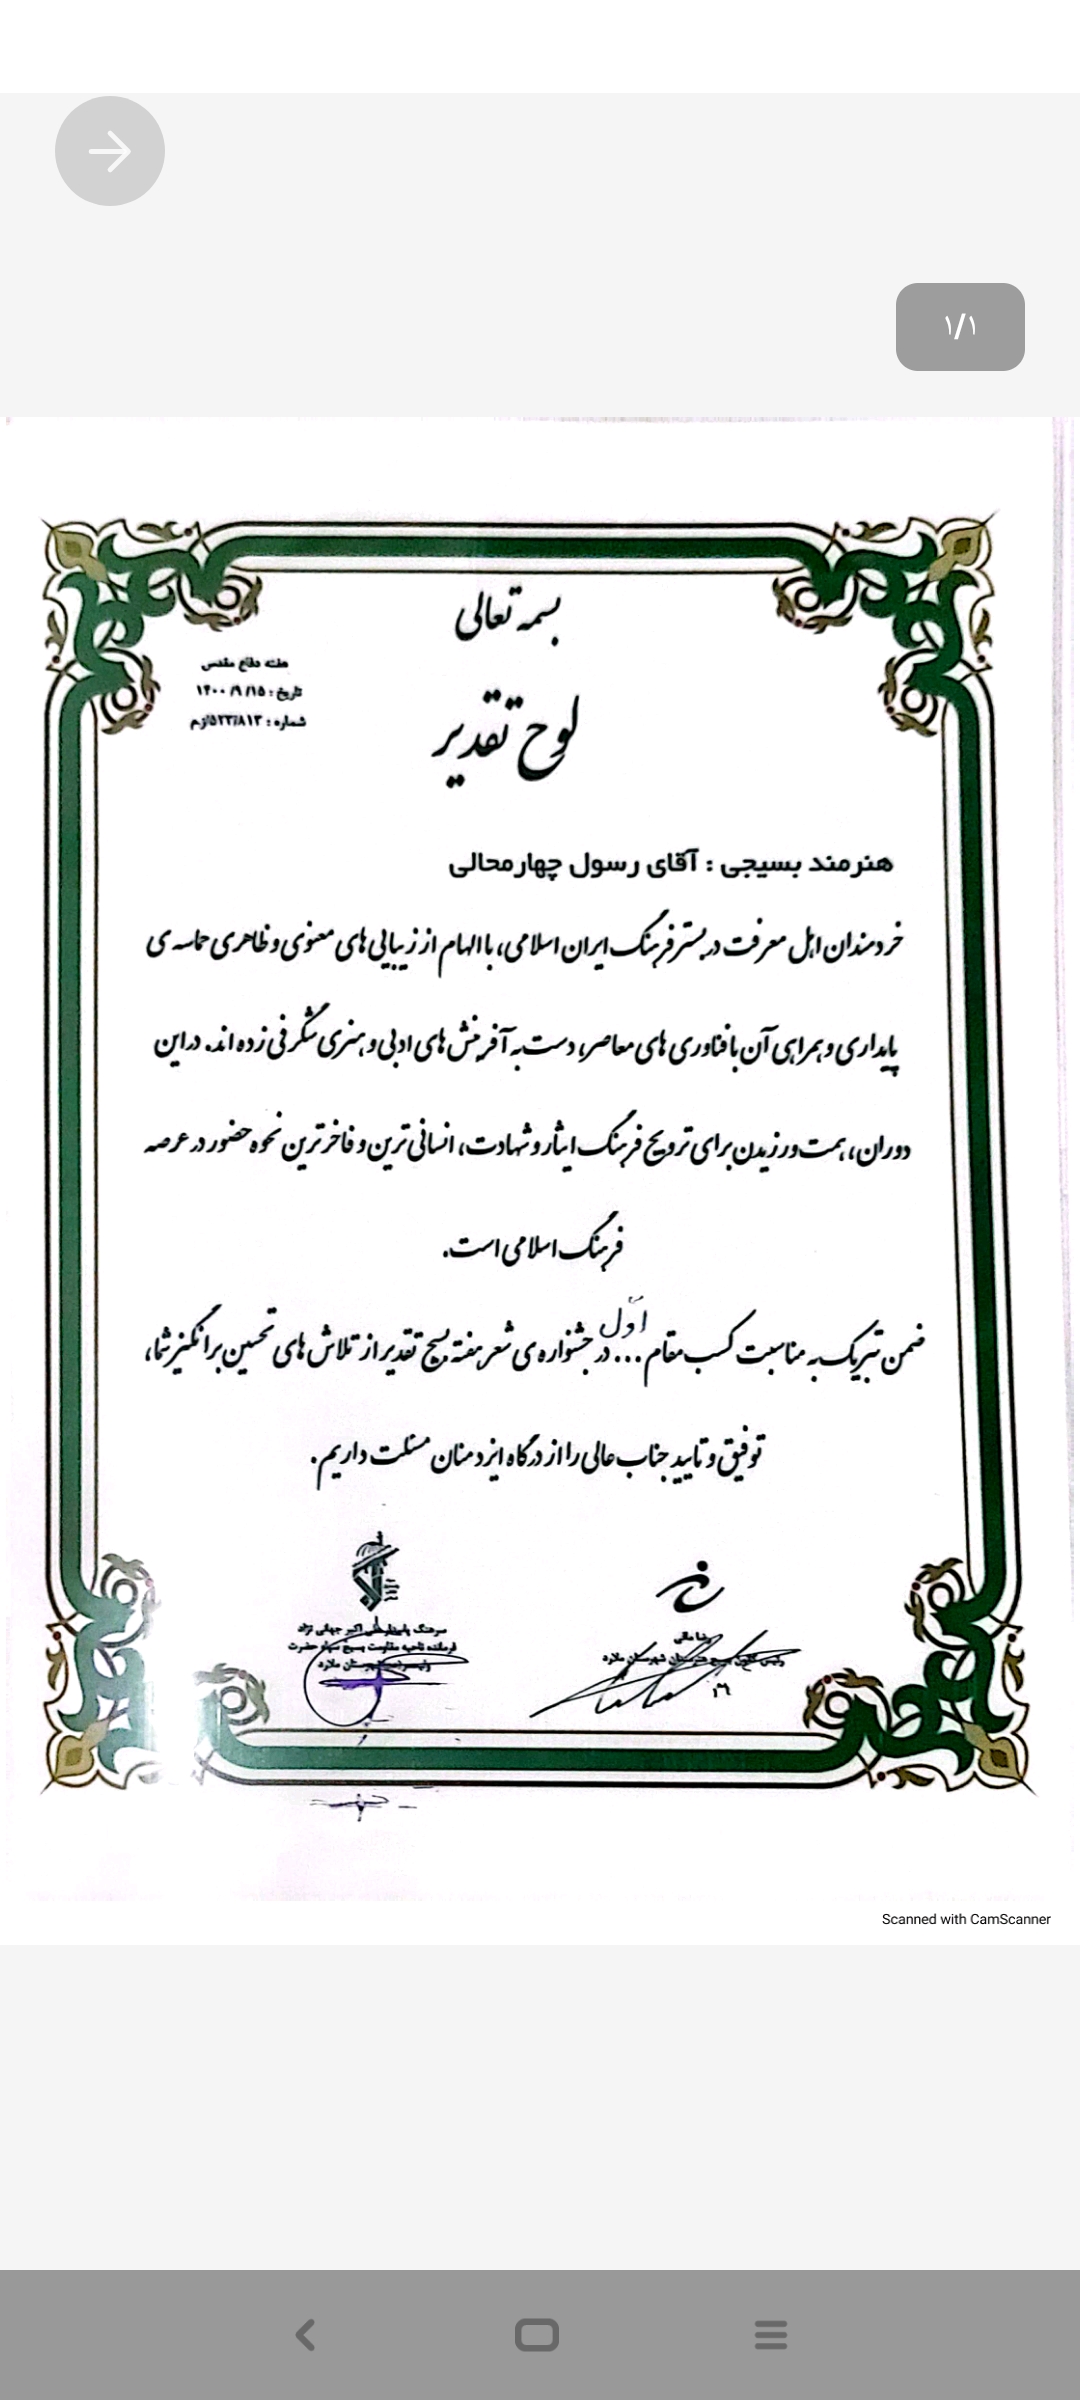 ۱/۱
بسمه تعالی
هفته دفاع مقدس
تاریخ : ۱۴۰۰/۹/۱۵
شماره : ۵۲۳/۸۱۳/از.م
لوح تقدیر
هنرمند بسیجی : آقای رسول چهارمحالی
خردمندان اهل معرفت در بستر فرهنگ ایران اسلامی، با الهام از زیبایی های معنوی و ظاهری حماسه ی
پایداری و همراهی آن با فناوری های معاصر، دست به آفرینش های ادبی و هنری شگرفی زده اند. در این
دوران، همت ورزیدن برای ترویج فرهنگ ایثار و شهادت، انسانی ترین و فاخرترین نحوه حضور در عرصه
فرهنگ اسلامی است.
ضمن تبریک به مناسبت کسب مقام ... اول در جشنواره ی شعر هفته بسیج تقدیر از تلاش های تحسین برانگیز شما،
توفیق و تایید جناب عالی را از درگاه ایزد منان مسئلت داریم.
رضا مافی
رئیس کانون بسیج هنرمندان شهرستان ملارد
سرهنگ پاسدار علی اکبر جهانی نژاد
فرمانده ناحیه مقاومت بسیج سپاه حضرت
شهرستان ملارد
Scanned with CamScanner